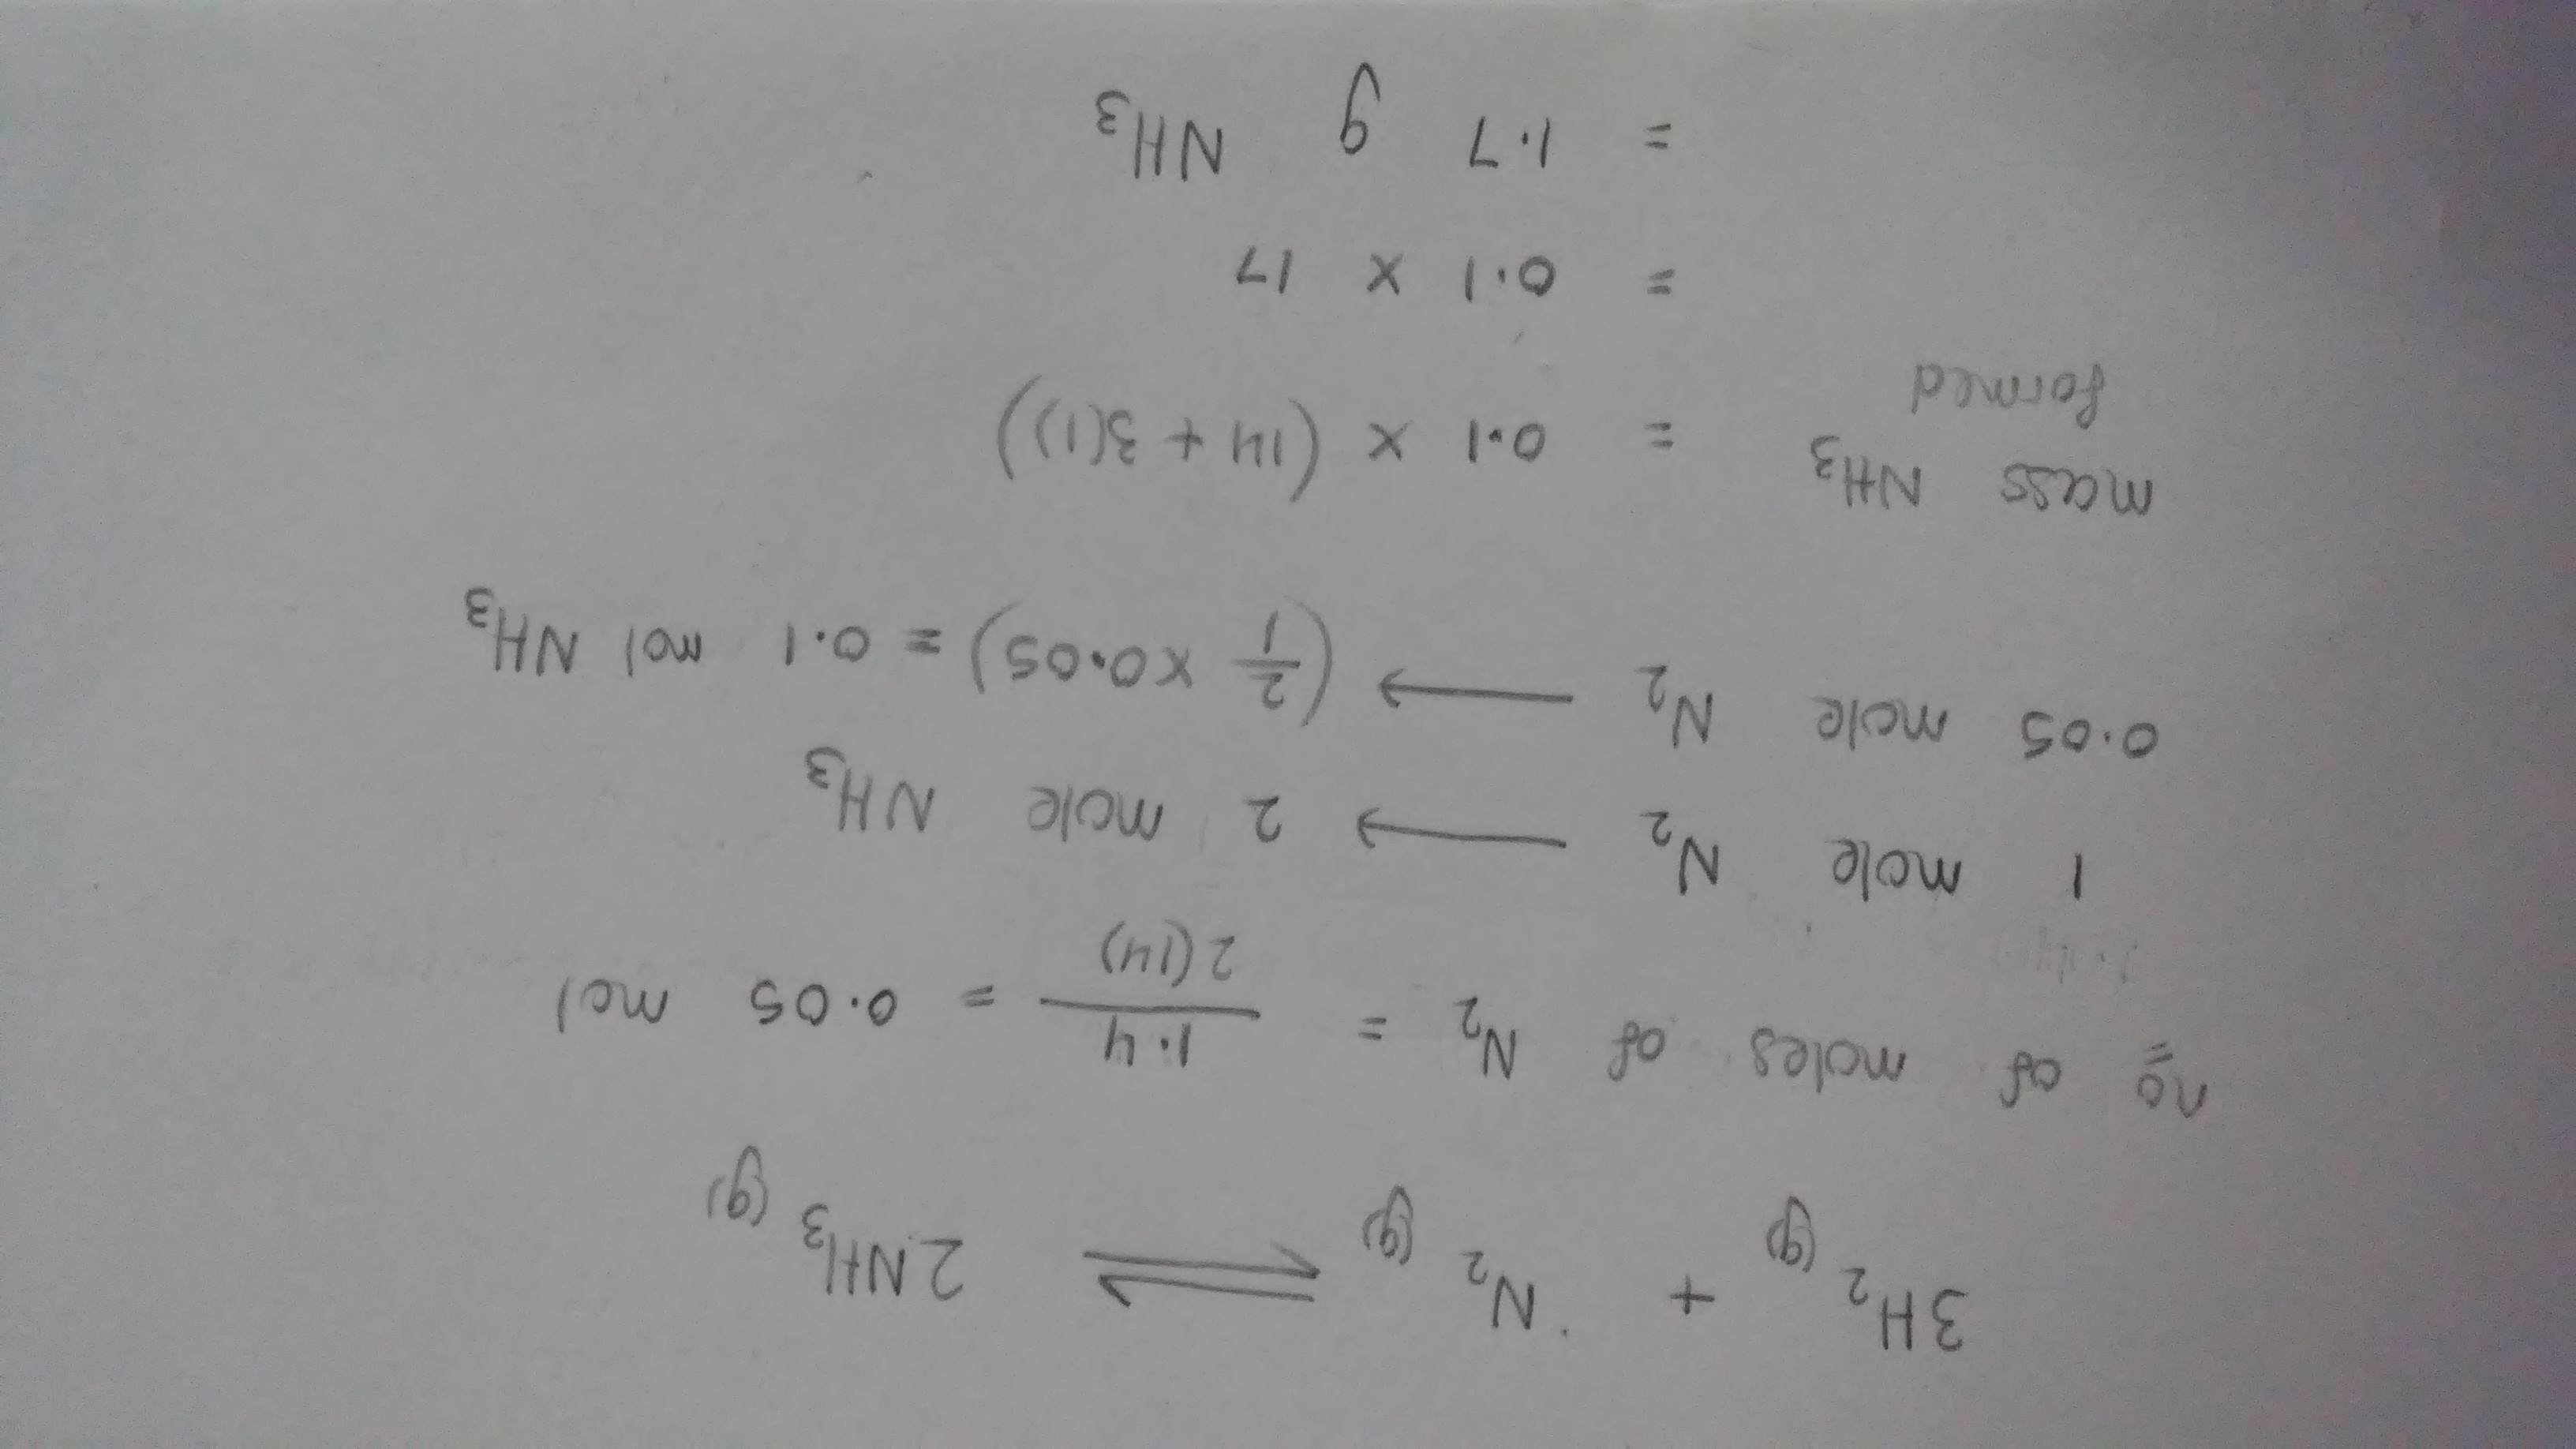 3H₂ (g) + N₂ (g) ⇌ 2NH₃ (g)
no of moles of N₂ = 1.4 / 2(14) = 0.05 mol
1 mole N₂ ⟶ 2 mole NH₃
0.05 mole N₂ ⟶ (2/1 × 0.05) = 0.1 mol NH₃
mass NH₃ formed = 0.1 × (14 + 3(1))
= 0.1 × 17
= 1.7 g NH₃